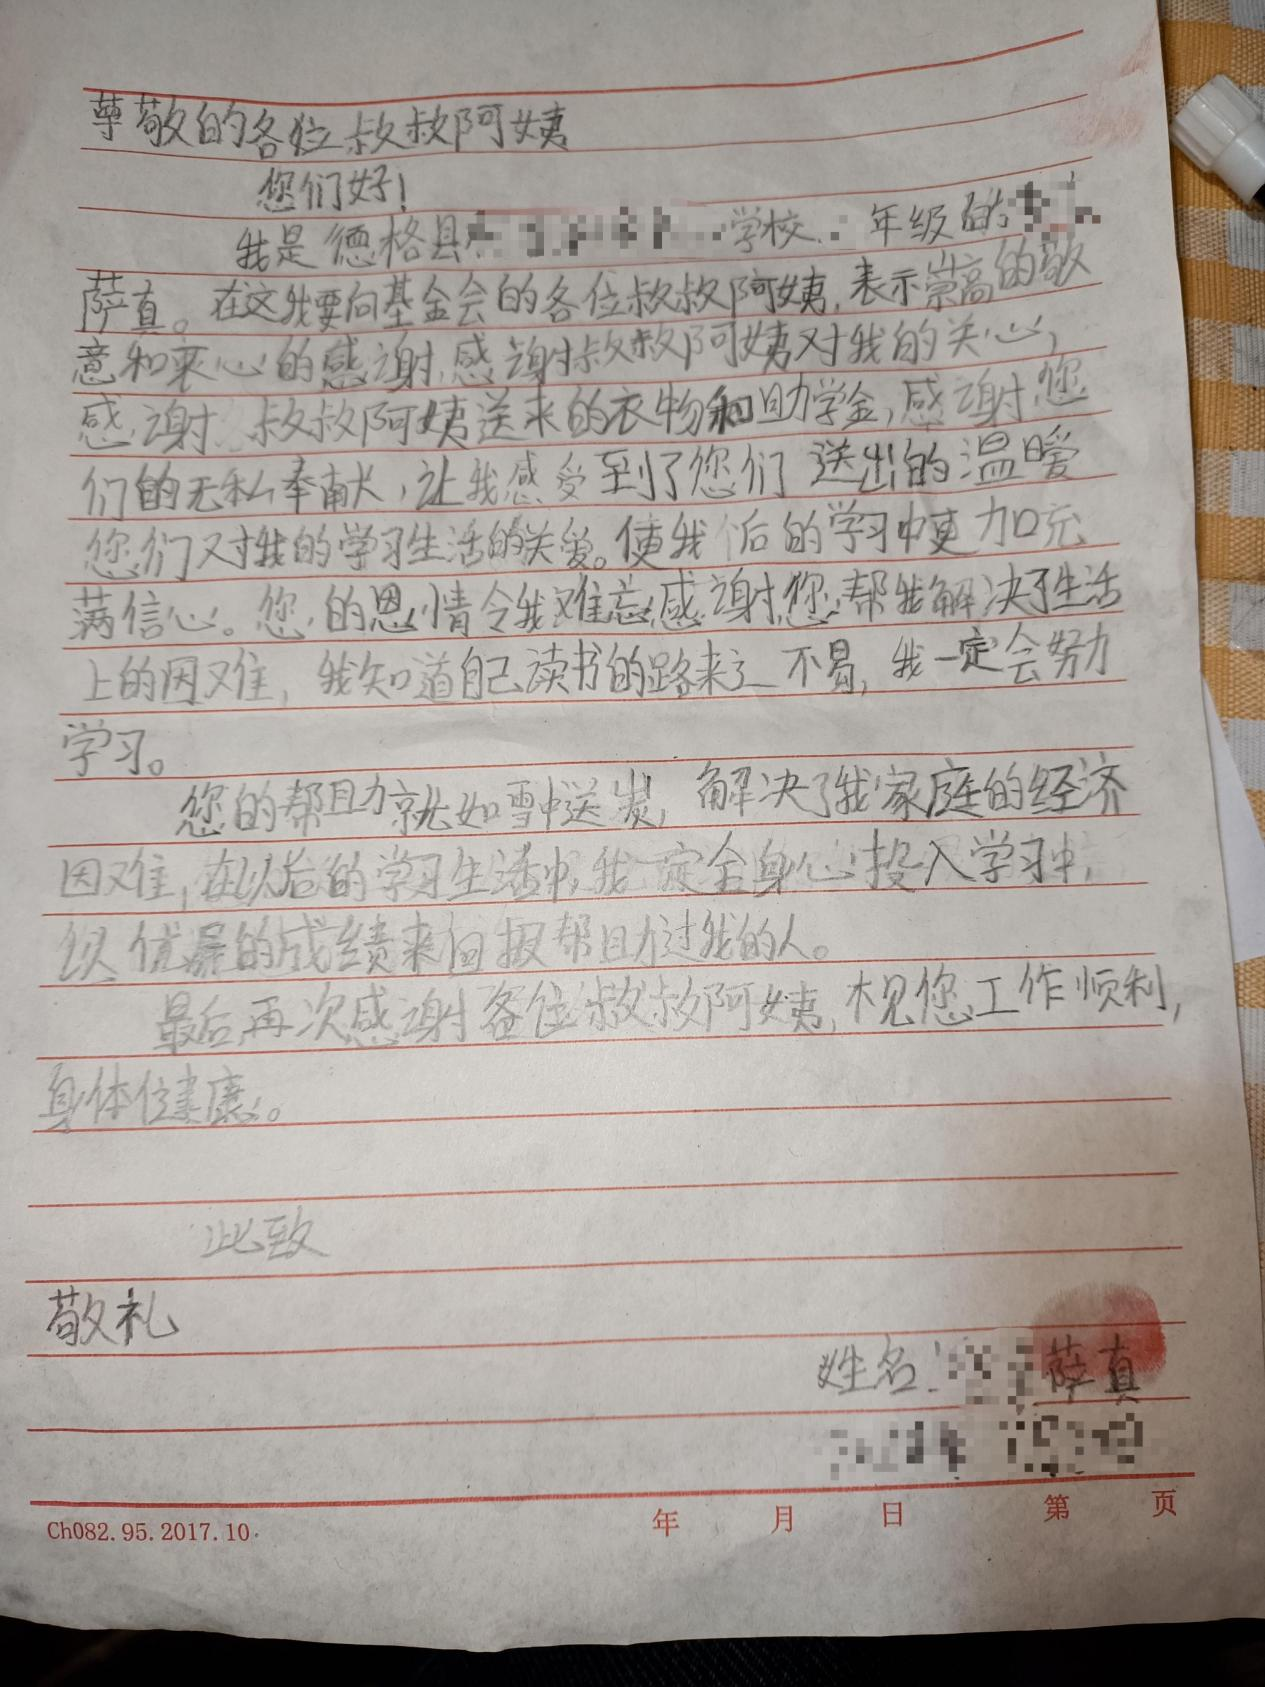 尊敬的各位叔叔阿姨
您们好!
我是德格县 学校 年级的
萨真。在这我要向基金会的各位叔叔阿姨,表示崇高的敬
意和衷心的感谢,感谢叔叔阿姨对我的关心,
感谢 叔叔阿姨送来的衣物和助学金,感谢您
们的无私奉献,让我感受到了您们 送出的温暖
您们对我的学习生活的关爱。使我 后的学习中更加充
满信心。您的恩情令我难忘感谢您帮我解决了生活
上的因难,我知道自己读书的路来之不易,我一定会努力
学习。
您的帮助就如雪中送炭,解决了我家庭的经济
因难,在以后的学习生活中,我一定全身心投入学习中,
以优异的成绩来回报帮助过我的人。
最后,再次感谢各位叔叔阿姨,祝您工作顺利,
身体健康。
此致
敬礼
姓名: 萨真
Ch082.95.2017.10. 年 月 日 第 页